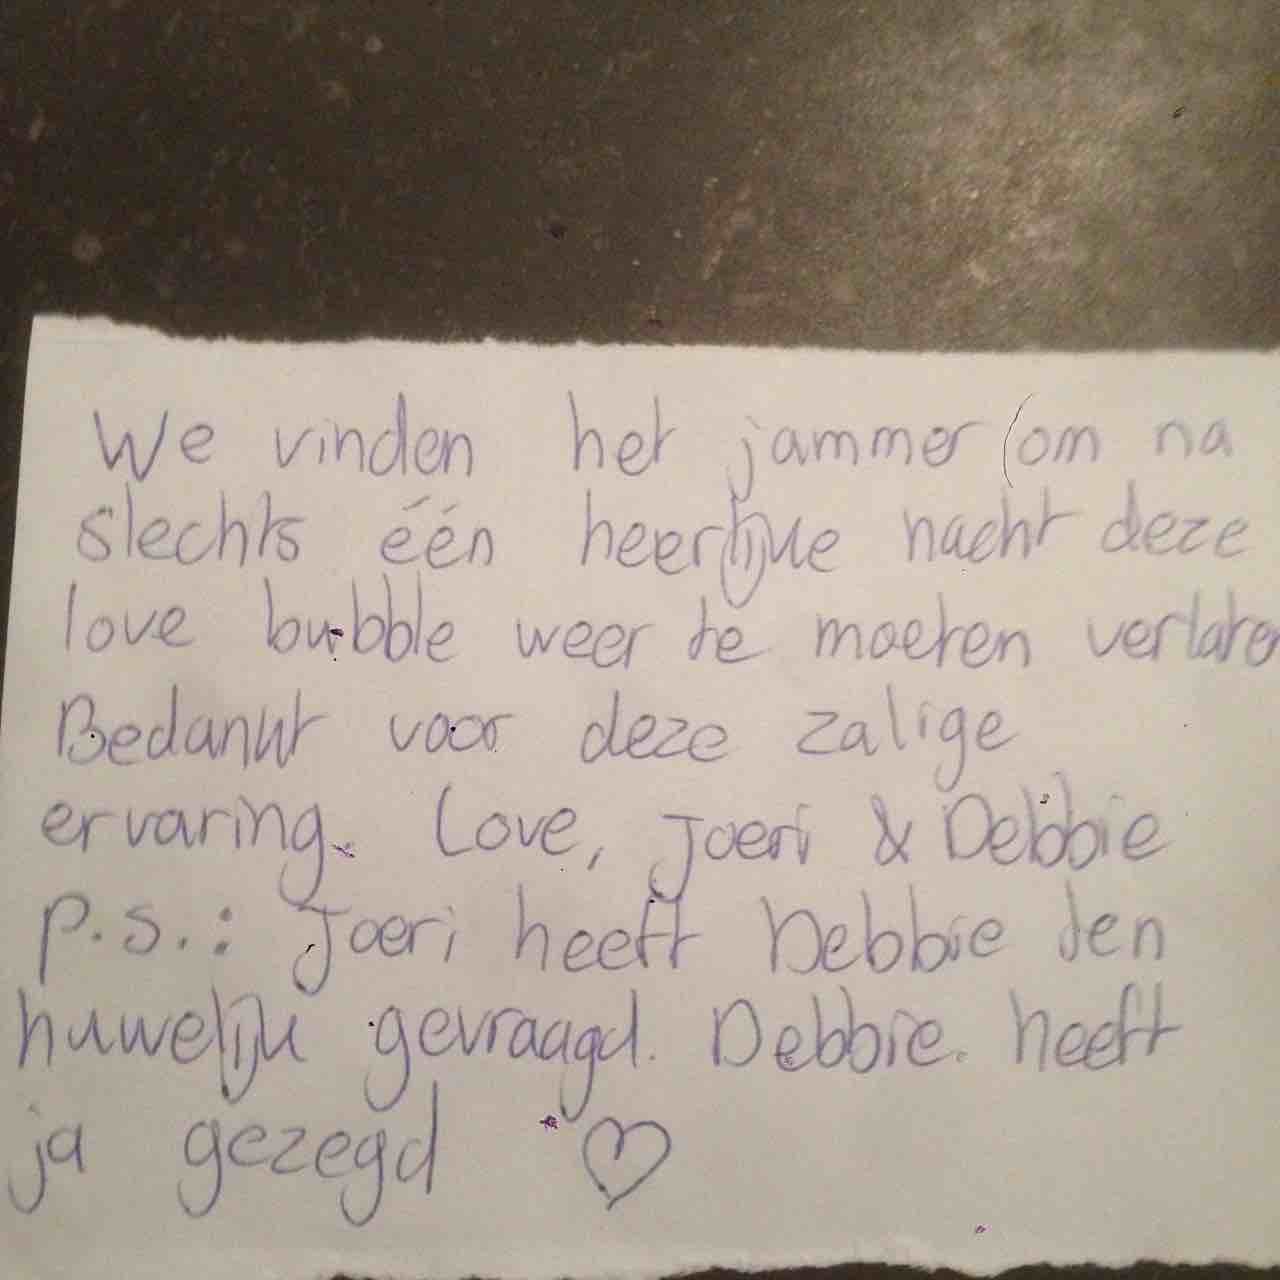 We vinden het jammer om na
slechts één heerlijke nacht deze
love bubble weer te moeten verlaten
Bedankt voor deze zalige
ervaring. Love, Joeri & Debbie
P.S.: Joeri heeft Debbie ten
huwelijk gevraagd. Debbie heeft
ja gezegd ♡